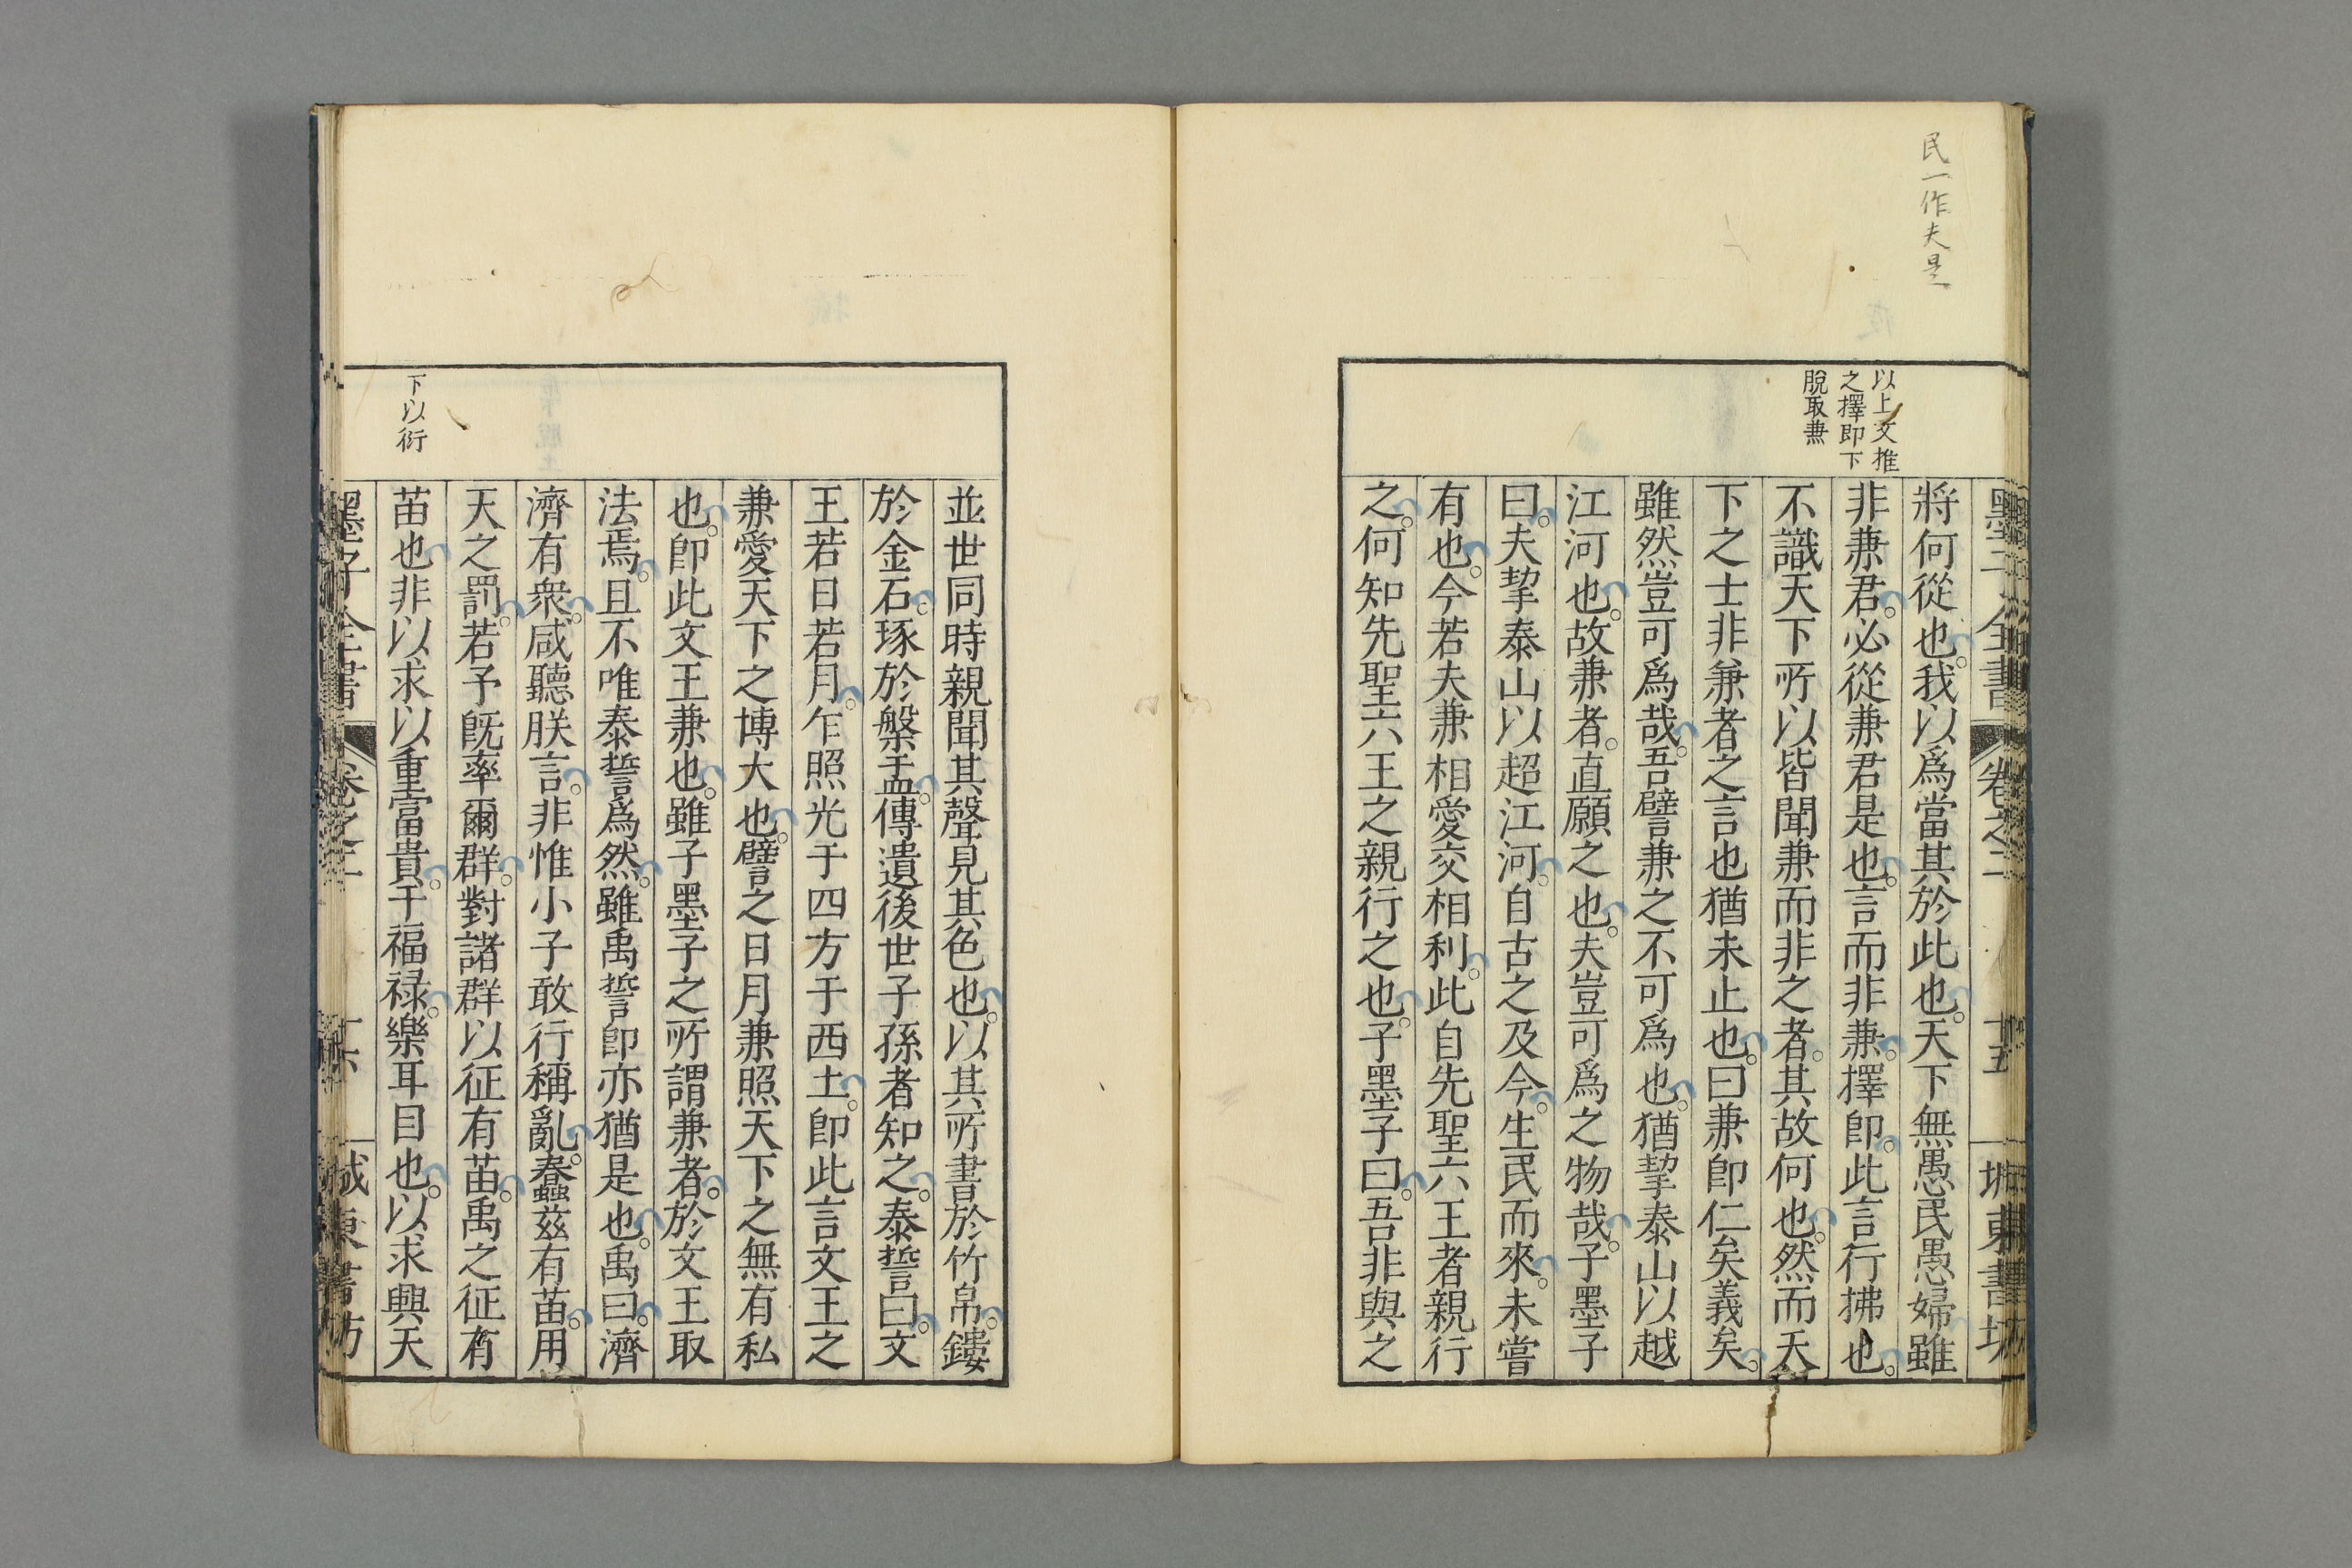 民一作夫是
以上文推
之擇即下
脫取兼
墨子全書 卷之二 十五 城東書坊
將何從也我以爲當其於此也天下無愚民愚婦雖
非兼君必從兼君是也言而非兼擇卽此言行拂也
不識天下所以皆聞兼而非之者其故何也然而天
下之士非兼者之言也猶未止也曰兼卽仁矣義矣
雖然豈可爲哉吾譬兼之不可爲也猶挈泰山以越
江河也故兼者直願之也夫豈可爲之物哉子墨子
曰夫挈泰山以超江河自古之及今生民而來未嘗
有也今若夫兼相愛交相利此自先聖六王者親行
之何知先聖六王之親行之也子墨子曰吾非與之
並世同時親聞其聲見其色也以其所書於竹帛鏤
於金石琢於槃盂傳遺後世子孫者知之泰誓曰文
王若日若月乍照光于四方于西土卽此言文王之
兼愛天下之博大也譬之日月兼照天下之無有私
也卽此文王兼也雖子墨子之所謂兼者於文王取
法焉且不唯泰誓爲然雖禹誓卽亦猶是也禹曰濟
濟有衆咸聽朕言非惟小子敢行稱亂蠢茲有苗用
天之罰若予既率爾群對諸群以征有苗禹之征有
下以衍
苗也非以求以重富貴干福祿樂耳目也以求興天
墨子全書 卷之二 十六 城東書坊